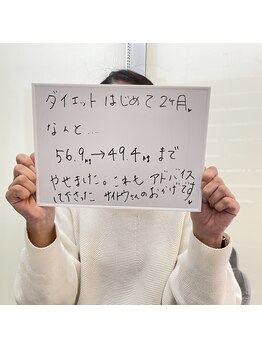 ダイエットはじめて2ヶ月♥
なんと…
56.9kg→49.4kgまで
やせました。これもアドバイス
して下さった サイトウさんのおかげです♥